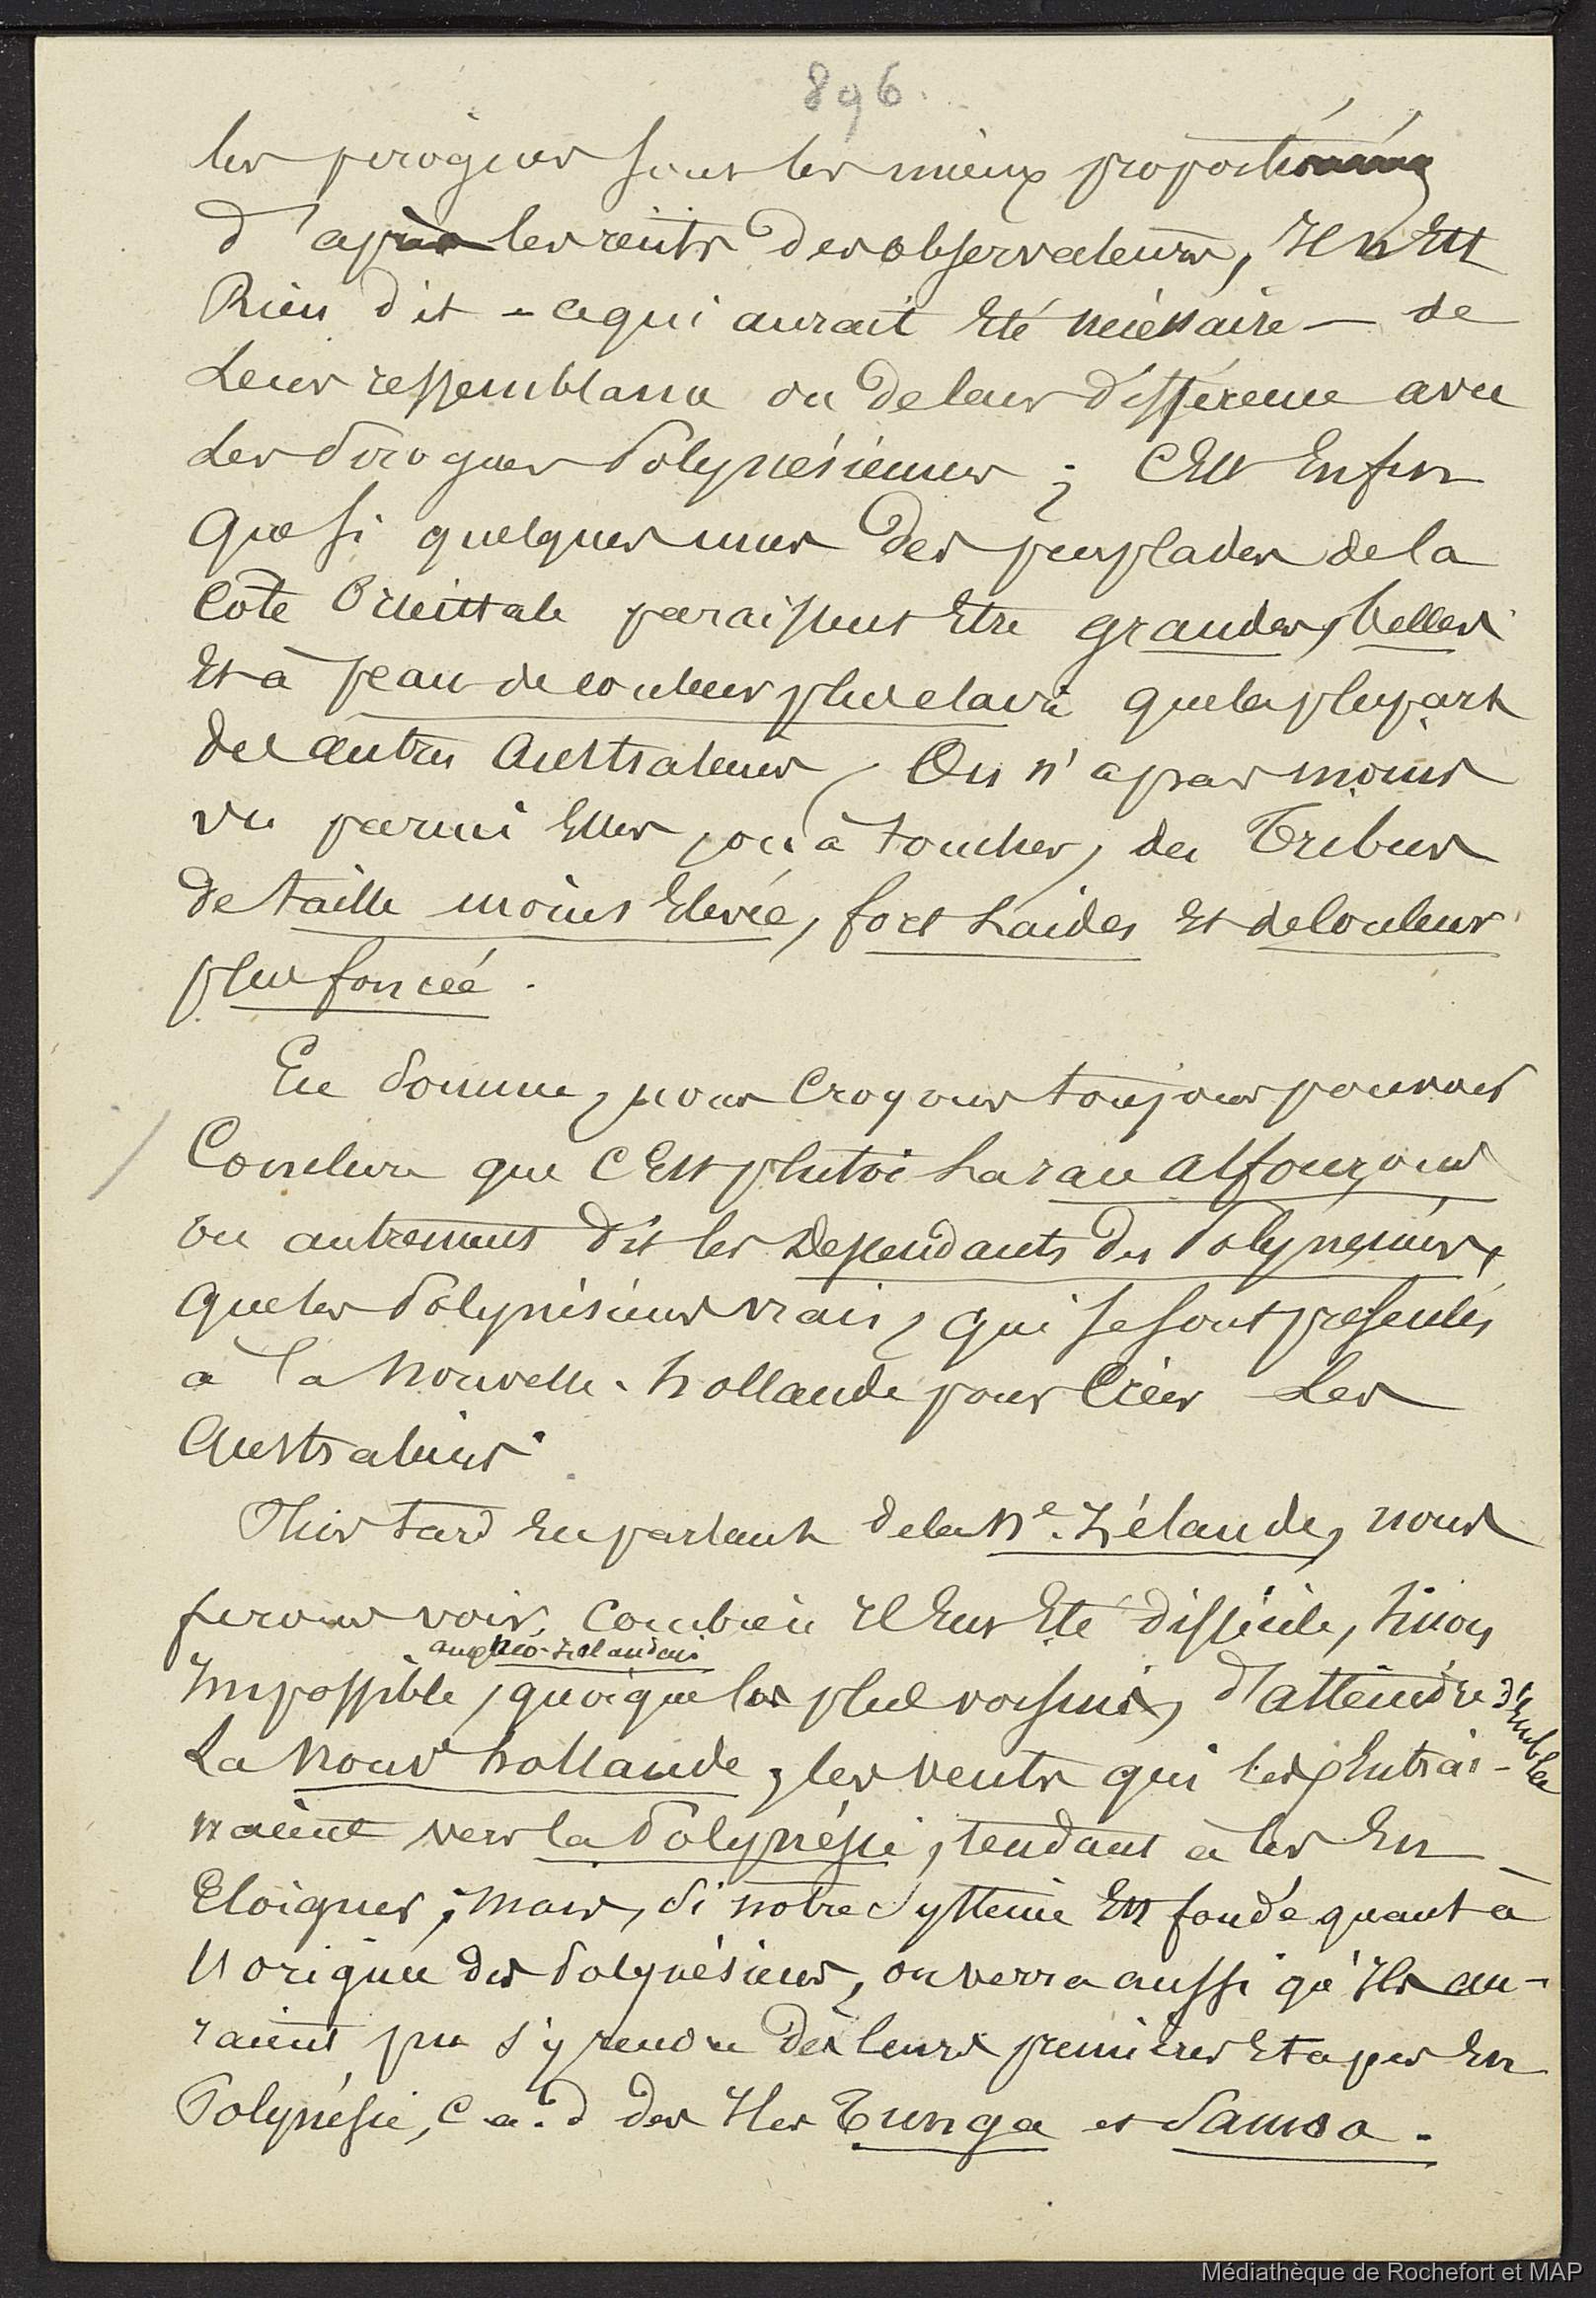 896.
les pirogues sont les mieux proportionnées
d'après les récits des observateurs, Il n'Est
Rien dit - ce qui aurait Eté nécessaire - de
Leur ressemblance ou de leur différence avec
Les Pirogues Polynésiennes ; C'Est Enfin
que si quelques unes des peuplades de la
Côte Orientale paraissent Etre grandes, belles
Et à peau de couleur plus claire que la plupart
des autres Australiens, On n'a pas moins
vu parmi Elles, ou à toucher, des Tribus
de taille moins Elevée, fort Laides Et de Couleur
plus foncée.
En Somme, nous Croyons toujours pouvoir
Conclure que C'Est plutôt La race alfourous
ou autrement dit les Descendants des Polynésiens,
que les Polynésiens vrais, qui se sont présentés
à la Nouvelle-hollande pour Créer Les
Australiens.
Plus tard En parlant de la Nle. Zélande, nous
ferons voir, Combien Il Eut Eté difficile, Sinon
aux Néo-Zélandais
Impossible, quoique les plus voisins, d'atteindre d'Emblée
La Nouv hollande, les vents qui les Entraî-
naient vers la Polynésie, tendant à les En
Eloigner ; mais, si notre Système Est fondé quant à
l'origine des Polynésiens, on verra aussi qu'Ils au-
raient pu s'y rendre dès leurs premières Etapes En
Polynésie, C.a.d des Iles Tunga et Samoa.
Médiathèque de Rochefort et MAP